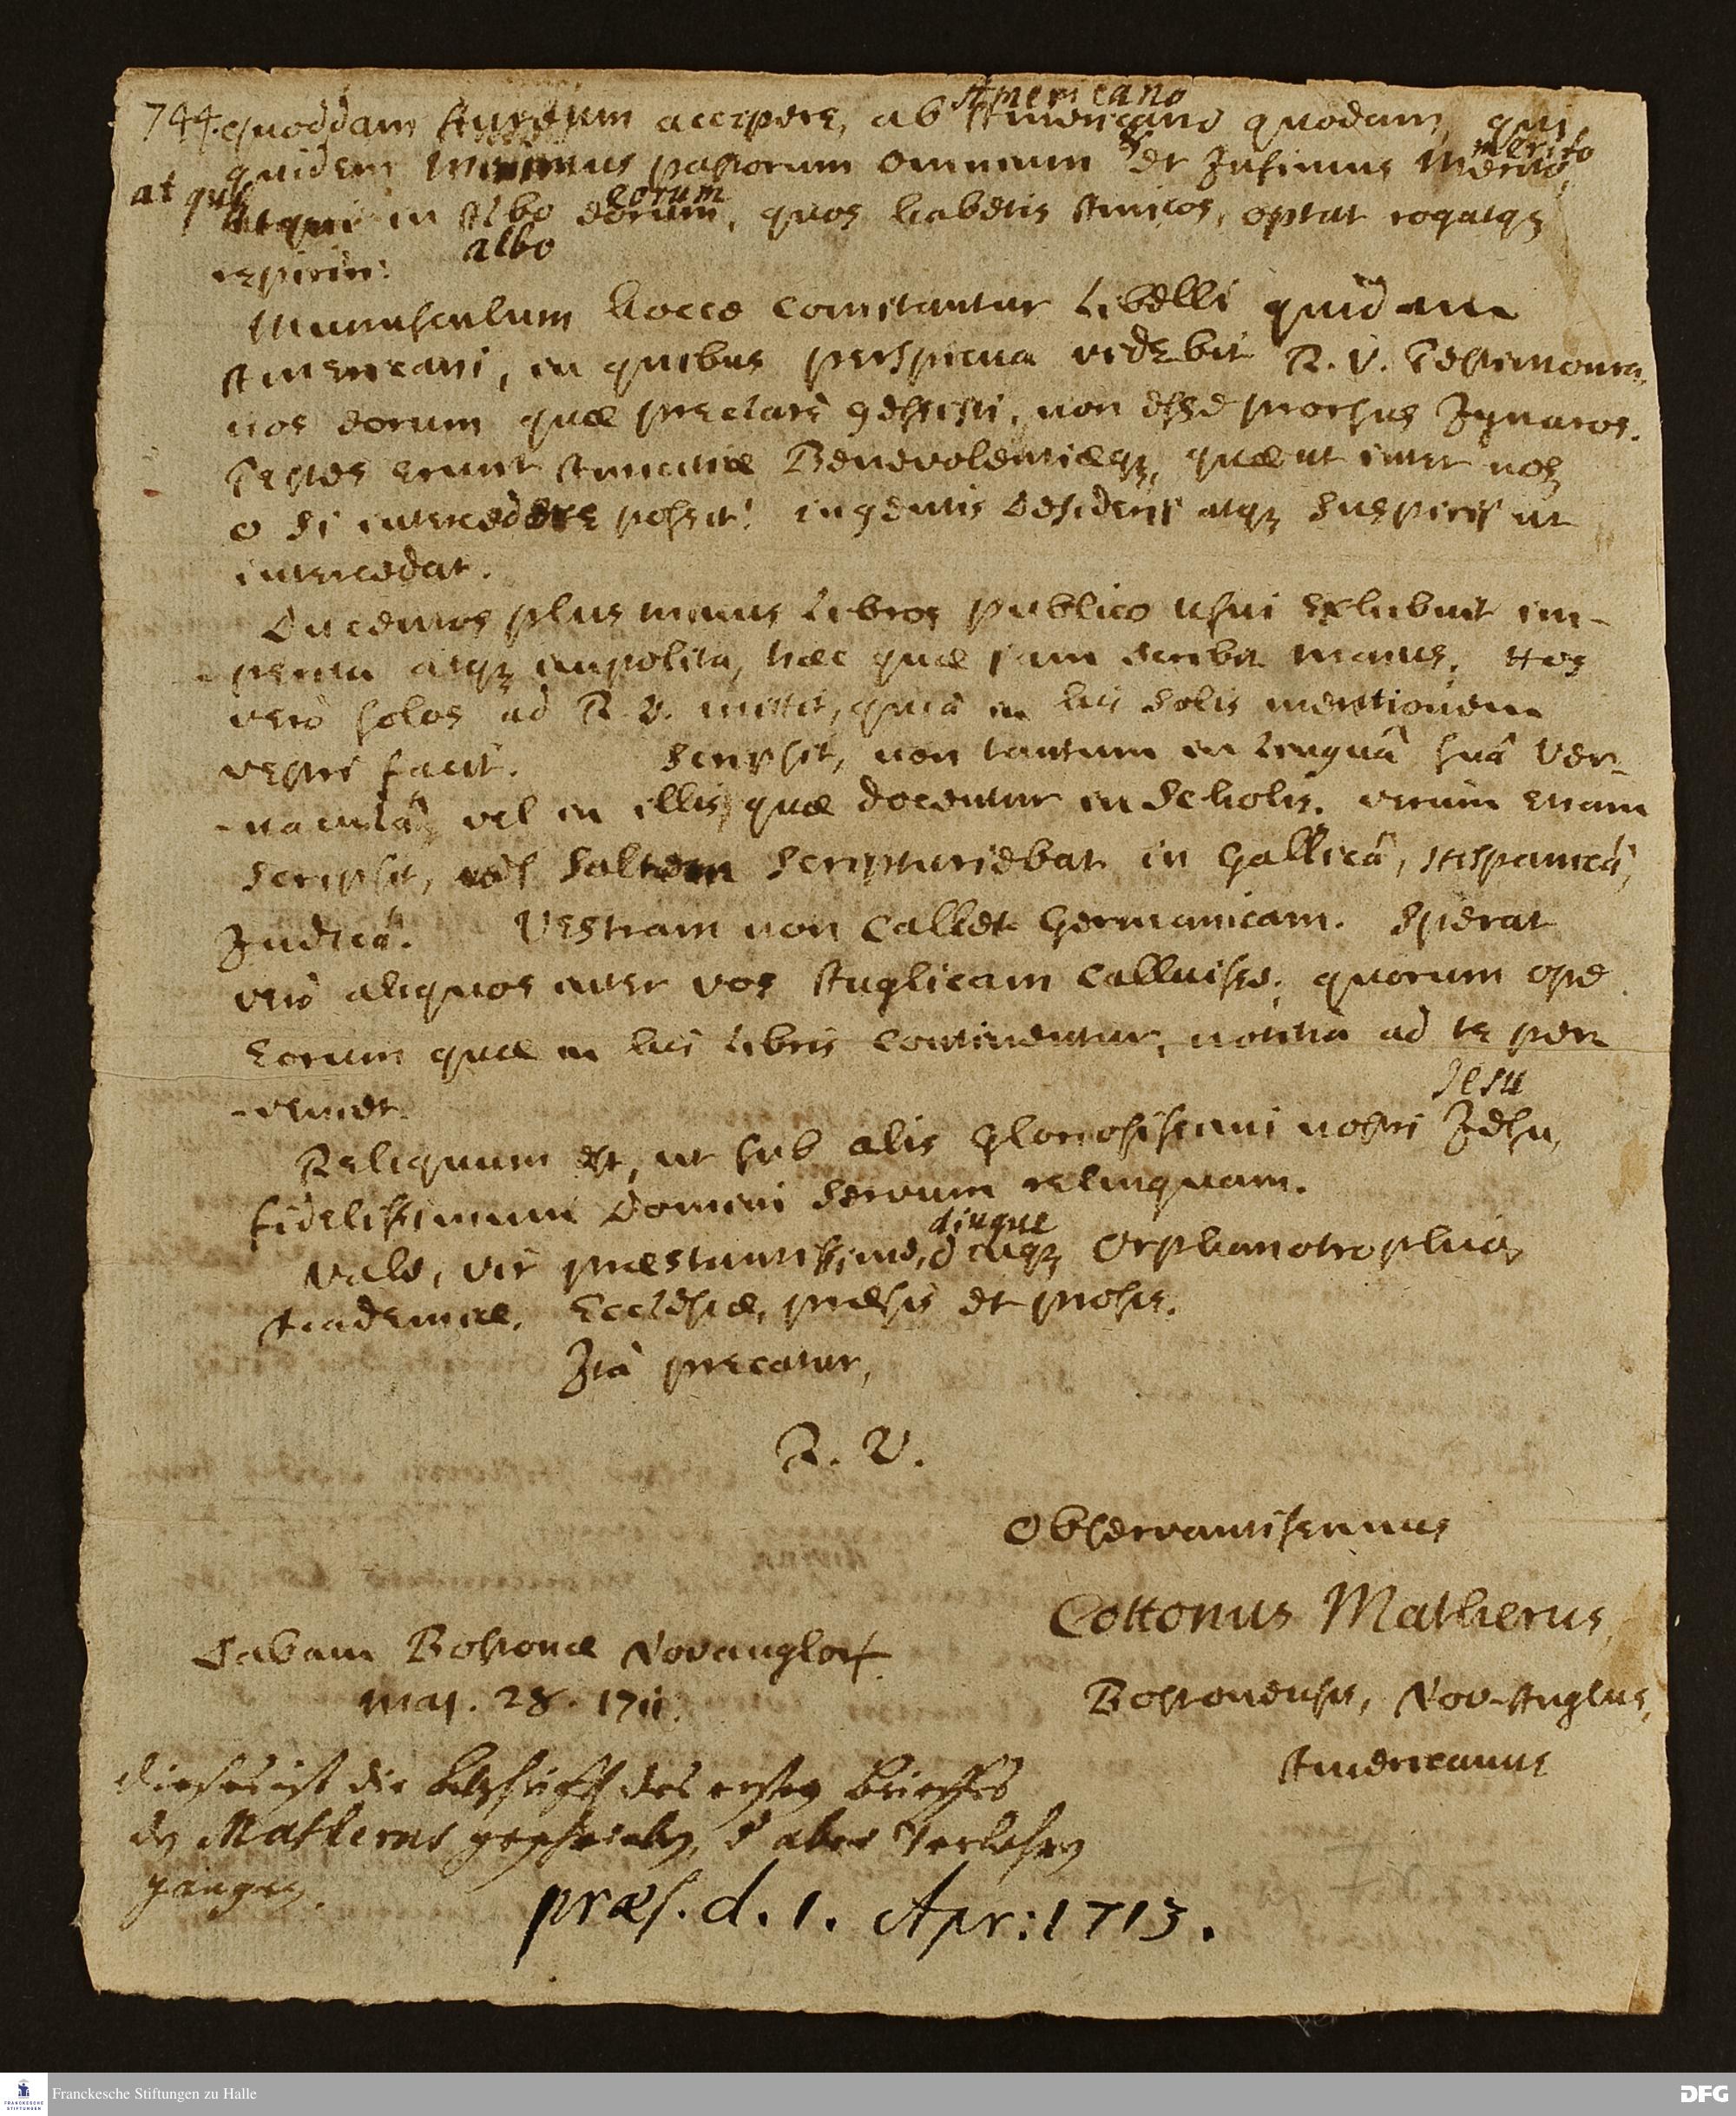 Americano
744. quoddam Aureum accipere, ab Americano quodam, qui
merito
quidem minimus pastorum omnium et Infimus merito,
at qui eorum
Atqui in Albo eorum, quos habetis Amicos, optat rogatqꝫ
albo
reperiri:
Munusculum hocce comitantur Libelli quidam
Americani, in quibus perspicua videbit R. V. Testimonia,
nos eorum quæ præclarè gessisti, non esse prorsus Ignaros.
Testes erunt Amicitiæ Benevolentiæqꝫ, quæ ut inter nos,
o si intercedere possit! ingentis desiderij atqꝫ suspirij ut
intercedat.
Ducentos plus minus Libros publico usui exhibuit im-
-perita atqꝫ impolita, hæc quæ jam scribit manus. Hos
verò solos ad R. V. mittit, quià in his solis mentionem
vestri facit. Scripsit, non tantum in linguâ suâ Ver-
-naculâ, vel in illis, quæ docentur in Scholis. verum etiam
scripsit, vel saltem scripturiebat in Gallicâ, Hispanicâ,
Indicâ. Vestram non callet Germanicam. Sperat
verò aliquos inter vos Anglicam calluisse; quorum ope
eorum quæ in his Libris continentur, notitia ad te per
-veniet.
Jesu
Reliquum est, ut sub alis gloriosissimi nostri Jesu,
fidelissimum Domini servum relinquam.
diuque
Vale, vir præstantissime, diuqꝫ Orphanotrophio,
Academiæ, Ecclesiæ, præsis et prosis.
Ità precatur,
R. V.
Observantissimus
Cottonus Matherus,
Dabam Bostonæ Novanglor.
Bostonensis, Nov-Anglus,
Maj. 28. 1711.
Americanus
dieses ist die Abschrifft des ersten Brieffes
den Matherus geschrieben, d aber verlohren
gangen.
præs. d. 1. Apr: 1713.
Franckesche Stiftungen zu Halle
FRANCKESCHE
STIFTUNGEN
DFG